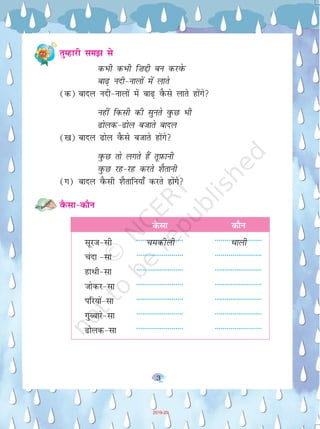 तुम्हारी समझ से
कभी कभी ज़िद्दी बन करके
बाढ़ नदी-नालों में लाते
(क) बादल नदी-नालों में बाढ़ कैसे लाते होंगे?
नहीं किसी की सुनते कुछ भी
ढोलक-ढोल बजाते बादल
(ख) बादल ढोल कैसे बजाते होंगे?
कुछ तो लगते हैं तूफ़ानी
कुछ रह-रह करते शैतानी
(ग) बादल कैसी शैतानियाँ करते होंगे?
कैसा-कौन
कैसा कौन
सूरज-सी चमकीली थाली
चंदा -सा
हाथी-सा
जोकर-सा
परियों-सा
गुब्बारे-सा
ढोलक-सा
© NCERT
not to be republished
3
2019-20